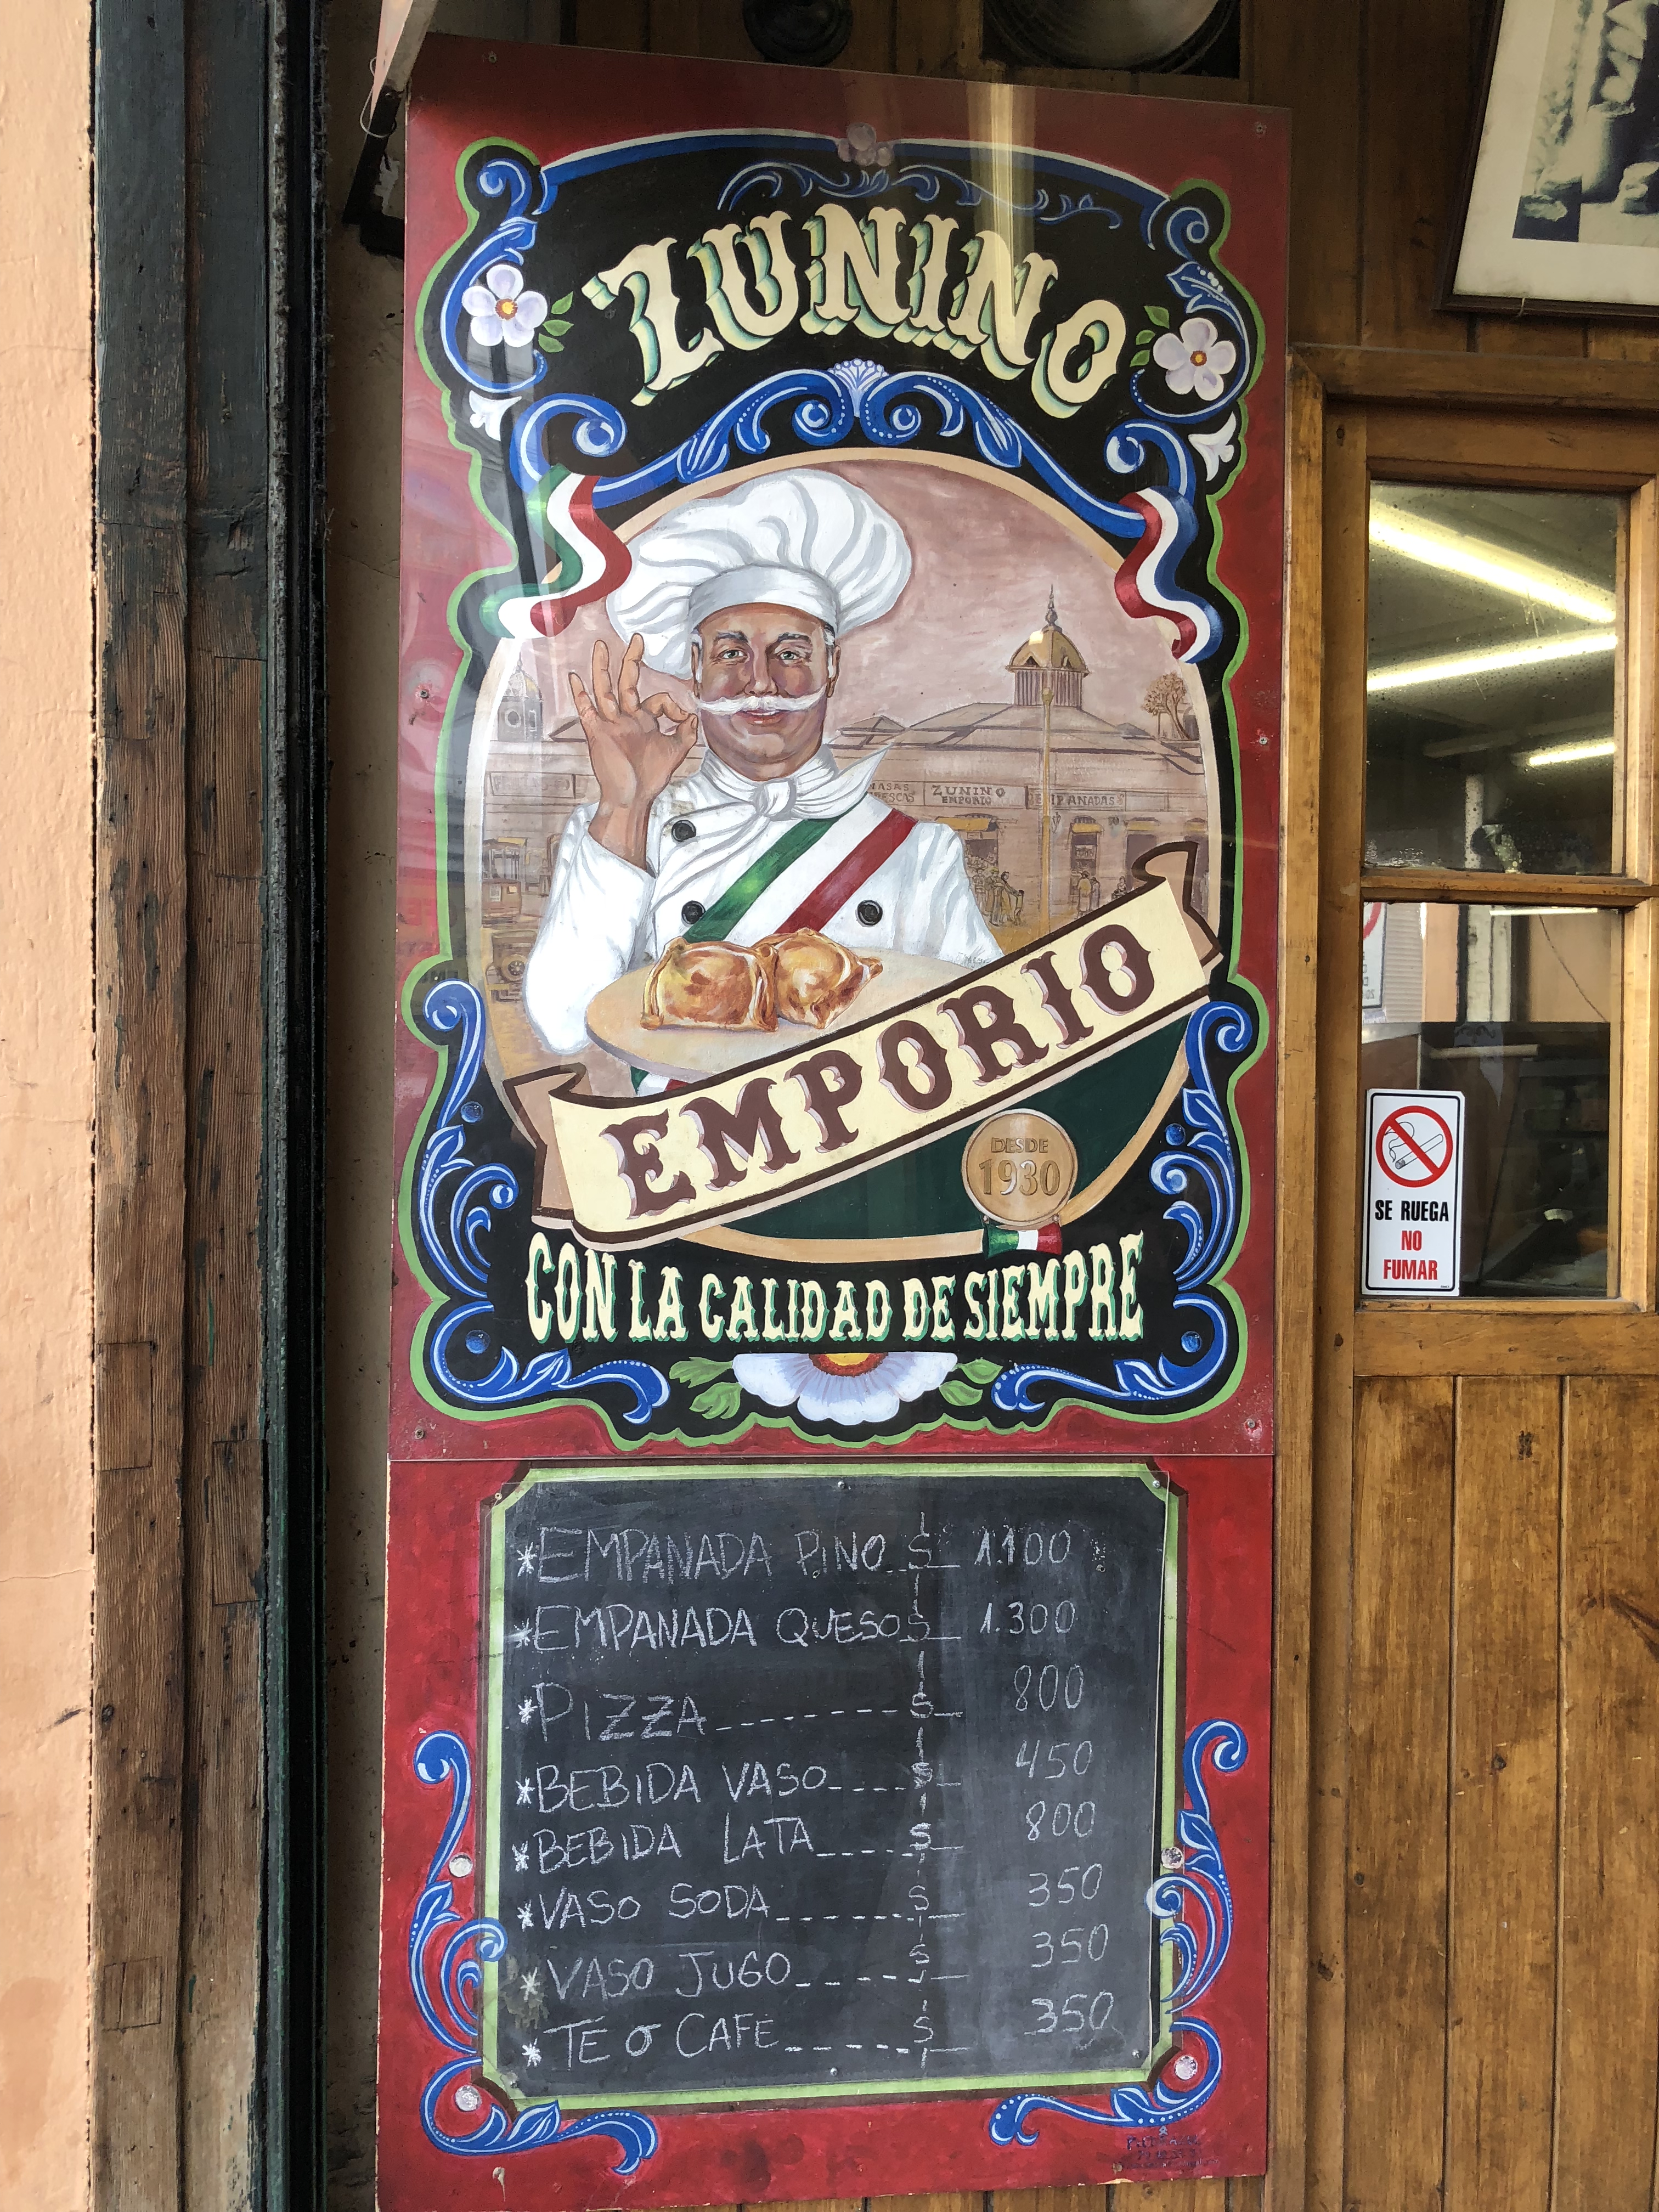 ZUNINO
ZUNINO
EMPORIO
EMPANADAS
EMPORIO
DESDE
1930
CON LA CALIDAD DE SIEMPRE
*EMPANADA PINO $ 1.100
*EMPANADA QUESO $ 1.300
*PIZZA--------- $ 800
*BEBIDA VASO---- $ 450
*BEBIDA LATA---- $ 800
*VASO SODA------ $ 350
*VASO JUGO------ $ 350
*TE O CAFE------ $ 350
SE RUEGA
NO
FUMAR